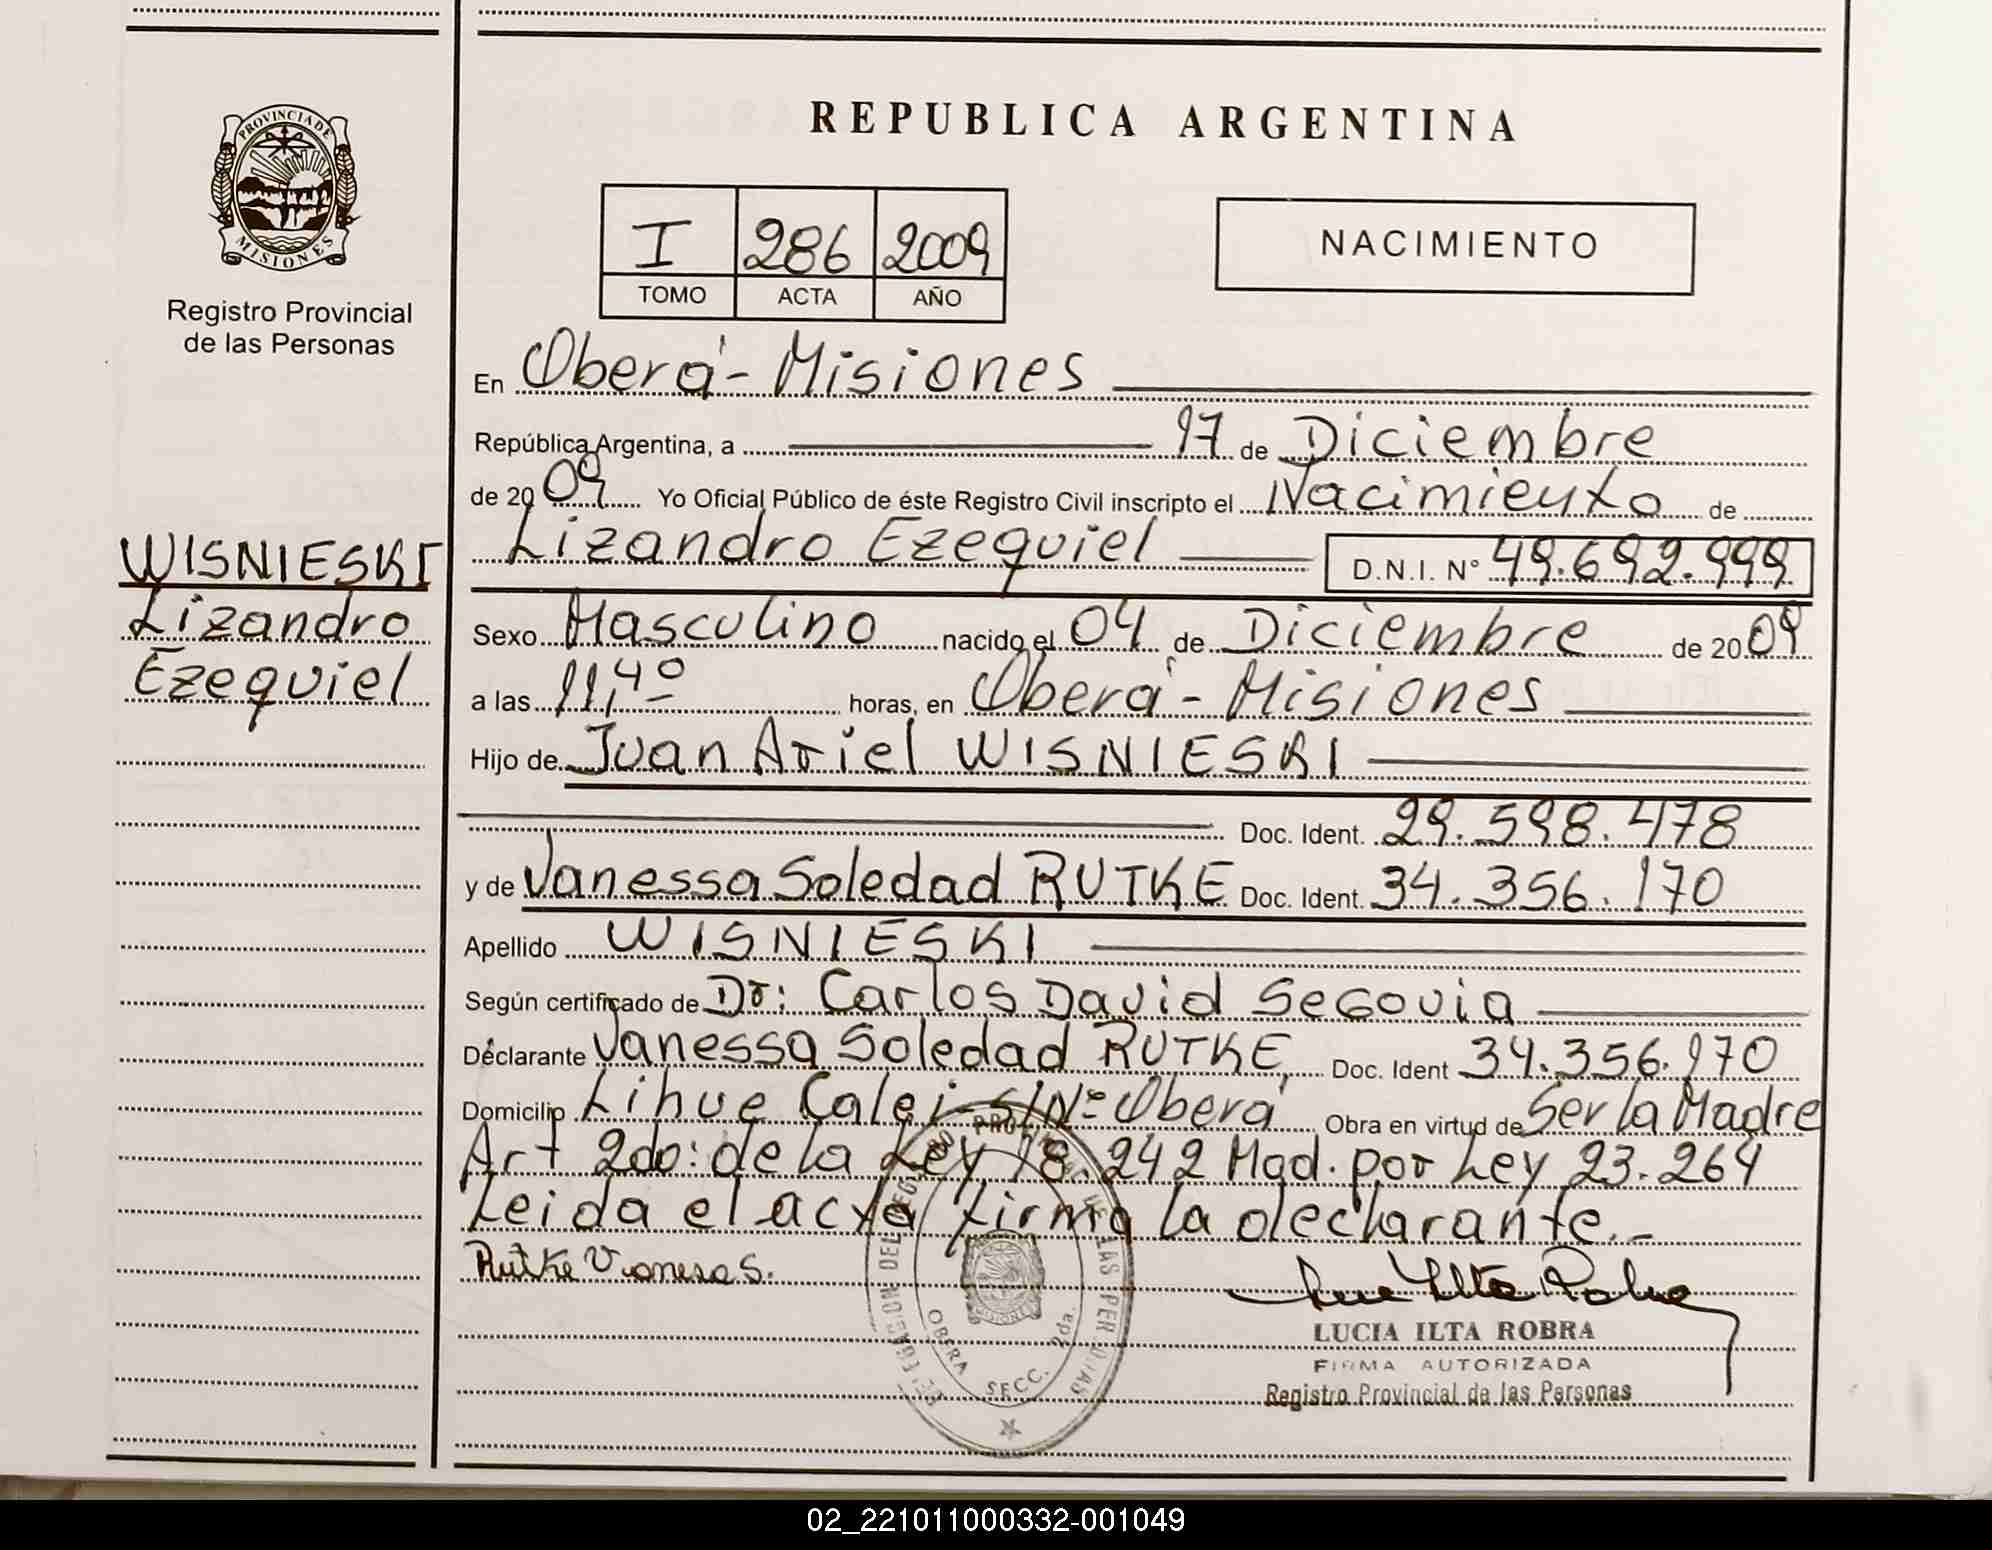 REPUBLICA ARGENTINA
PROVINCIA DE
MISIONES
Registro Provincial
de las Personas
I 286 2009
TOMO ACTA AÑO
NACIMIENTO
WISNIESKI
Lizandro
Ezequiel
En Oberá - Misiones
República Argentina, a 17 de Diciembre
de 2009 Yo Oficial Público de éste Registro Civil inscripto el Nacimiento de
Lizandro Ezequiel D.N.I. N° 49.692.999
Sexo Masculino nacido el 04 de Diciembre de 2009
a las 11,40 horas, en Oberá - Misiones
Hijo de Juan Ariel WISNIESKI
Doc. Ident. 29.598.478
y de Vanessa Soledad RUTKE Doc. Ident. 34.356.170
Apellido WISNIESKI
Según certificado de Dr: Carlos David Segovia
Declarante Vanessa Soledad RUTKE Doc. Ident 34.356.170
Domicilio Lihue Calei - S/Nº Oberá Obra en virtud de Ser la Madre
Art 2do: de la Ley 18.242 Mod. por Ley 23.264
Leida el acta firma la declarante.-
Rutke Vanesa S.
OBERA SECC. 2da.
LUCIA ILTA ROBRA
FIRMA AUTORIZADA
Registro Provincial de las Personas
02_221011000332-001049